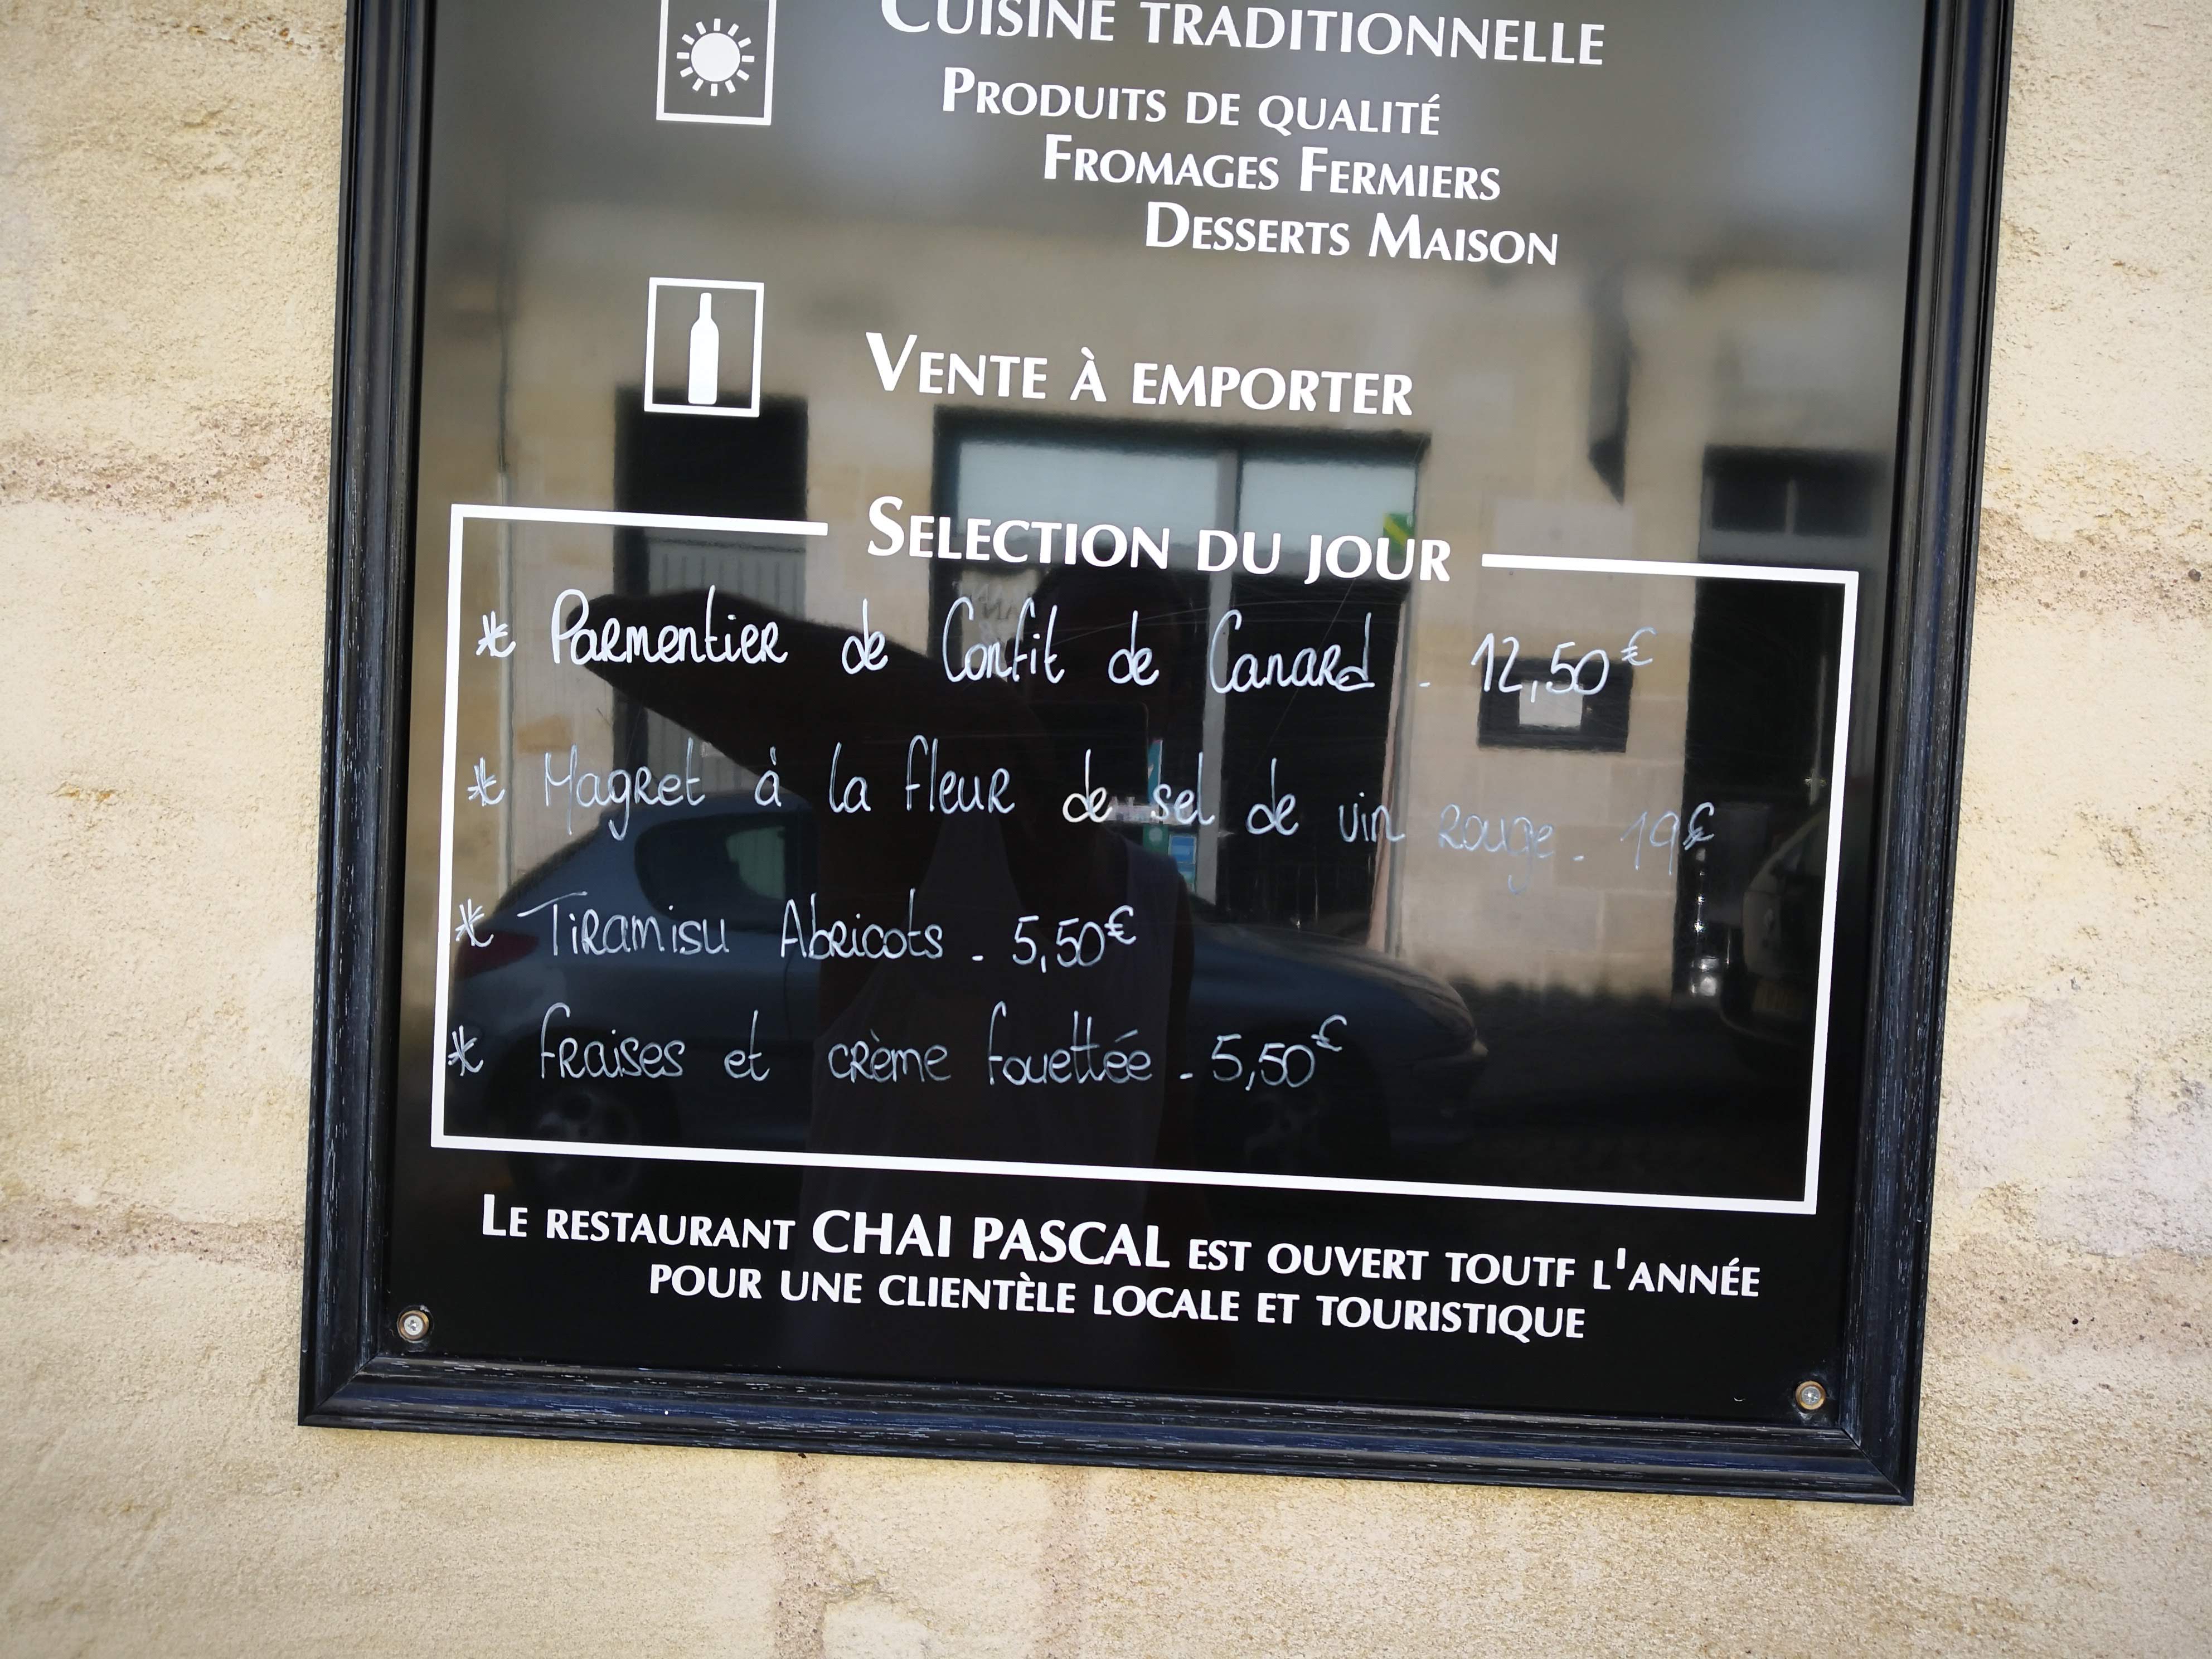 CUISINE TRADITIONNELLE
PRODUITS DE QUALITÉ
FROMAGES FERMIERS
DESSERTS MAISON
VENTE À EMPORTER
SELECTION DU JOUR
* Parmentier de Confit de Canard - 12,50€
* Magret à la fleur de sel de vin rouge - 19€
* Tiramisu Abricots - 5,50€
* fraises et crème fouettée - 5,50€
LE RESTAURANT CHAI PASCAL EST OUVERT TOUTF L'ANNÉE
POUR UNE CLIENTÈLE LOCALE ET TOURISTIQUE